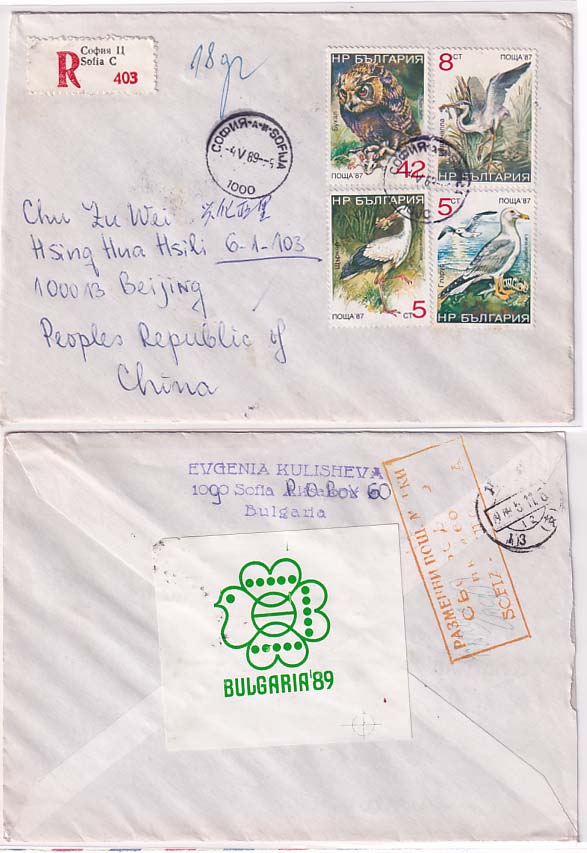 София Ц
Sofia C
R 403
18gr
СОФИЯ-SOFIJA
-4 V 89
1000
НР БЪЛГАРИЯ
Бухал
42
ПОЩА'87
8 СТ
ПОЩА'87
НР БЪЛГАРИЯ
СОФИЯ
НР БЪЛГАРИЯ
ПОЩА'87
5
5 СТ
ПОЩА'87
НР БЪЛГАРИЯ
Chu Zu Wei
Hsing Hua Hsili 6-1-103
100013 Beijing
Peoples Republic of
China
EVGENIA KULISHEVA
1090 Sofia P.O.Box 60
Bulgaria
РАЗМЕННИ ПОЩ М КИ
SOFIZ
BULGARIA'89